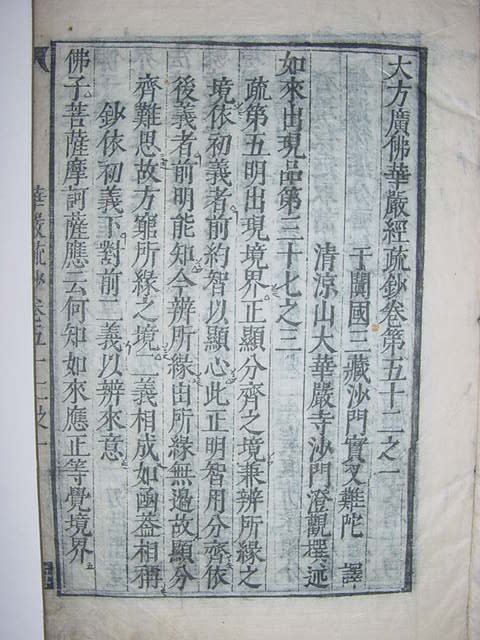 大方廣佛華嚴經疏鈔卷第五十二之一
于闐國三藏沙門實叉難陀 譯
清涼山大華嚴寺沙門澄觀撰述
如來出現品第三十七之三
疏第五明出現境界正顯分齊之境兼辨所緣之
境依初義者前約智以顯心此正明智用分齊依
後義者前明能知今辨所緣由所緣無邊故顯分
齊難思故方窮所緣之境二義相成如函葢相稱
鈔依初義下對前二義以辨來意
佛子菩薩摩訶薩應云何知如來應正等覺境界
華嚴疏鈔 卷五十二之一